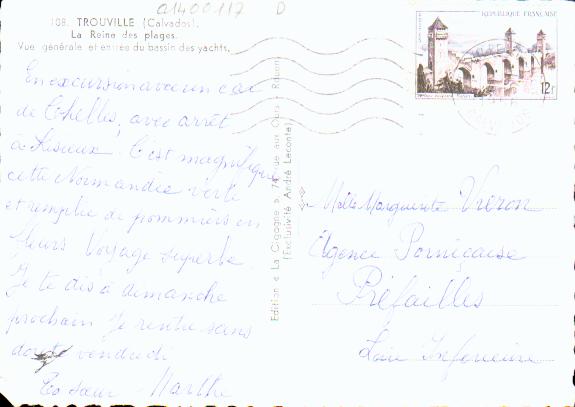 a1400117 D
108. TROUVILLE (Calvados).
La Reine des plages.
Vue générale et entrée du bassin des yachts.
En excursion avec un car
de Chelles, avec arrêt
à Lisieux. C'est magnifique
cette Normandie verte
et remplie de pommiers en
fleurs Voyage superbe
Je te dis à dimanche
prochain Je rentre sans
doute vendredi
Ta sœur Marthe
Edition « La Cigogne » 74, rue aux Ours - Rouen
(Exclusivité André Leconte)
REPUBLIQUE FRANÇAISE
12F
Melle Marguerite Vreron
Agence Pornicaise
Préfailles
Loire Inférieure